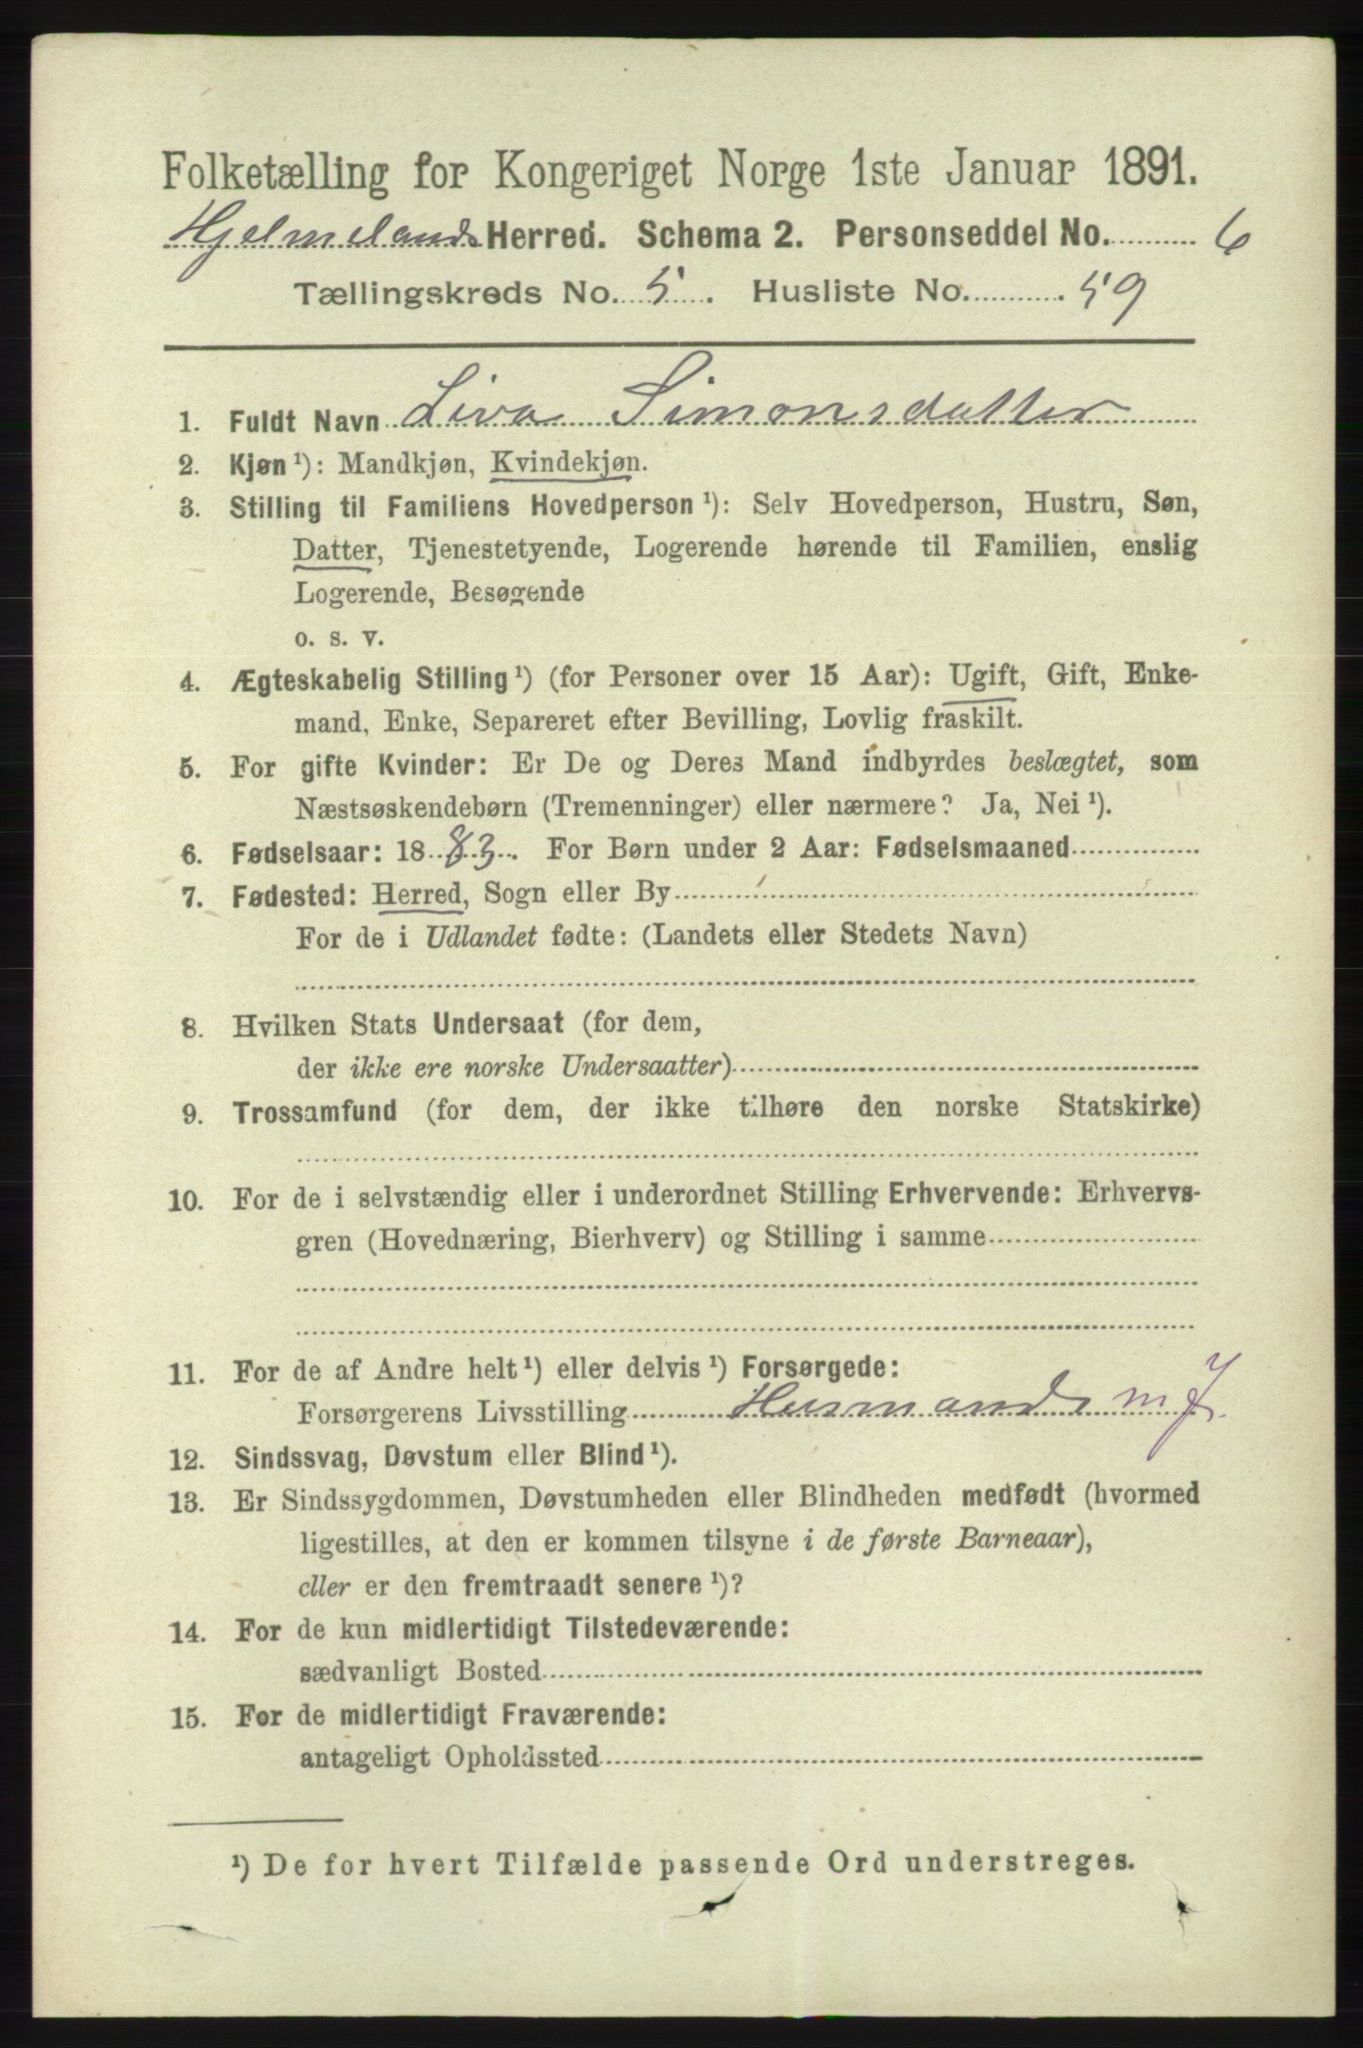 Folketælling for Kongeriget Norge 1ste Januar 1891.
Hjelmelands Herred. Schema 2. Personseddel No. 6
Tællingskreds No. 5. Husliste No. 59
1. Fuldt Navn Liva Simonsdatter
2. Kjøn ¹): Mandkjøn, Kvindekjøn.
3. Stilling til Familiens Hovedperson ¹): Selv Hovedperson, Hustru, Søn,
Datter, Tjenestetyende, Logerende hørende til Familien, enslig
Logerende, Besøgende
o. s. v.
4. Ægteskabelig Stilling ¹) (for Personer over 15 Aar): Ugift, Gift, Enke-
mand, Enke, Separeret efter Bevilling, Lovlig fraskilt.
5. For gifte Kvinder: Er De og Deres Mand indbyrdes beslægtet, som
Næstsøskendebørn (Tremenninger) eller nærmere? Ja, Nei ¹).
6. Fødselsaar: 1883. For Børn under 2 Aar: Fødselsmaaned
7. Fødested: Herred, Sogn eller By
For de i Udlandet fødte: (Landets eller Stedets Navn)
8. Hvilken Stats Undersaat (for dem,
der ikke ere norske Undersaatter)
9. Trossamfund (for dem, der ikke tilhøre den norske Statskirke)
10. For de i selvstændig eller i underordnet Stilling Erhvervende: Erhvervs-
gren (Hovednæring, Bierhverv) og Stilling i samme
11. For de af Andre helt ¹) eller delvis ¹) Forsørgede:
Forsørgerens Livsstilling Husmands m J.
12. Sindssvag, Døvstum eller Blind ¹).
13. Er Sindssygdommen, Døvstumheden eller Blindheden medfødt (hvormed
ligestilles, at den er kommen tilsyne i de første Barneaar),
eller er den fremtraadt senere ¹)?
14. For de kun midlertidigt Tilstedeværende:
sædvanligt Bosted
15. For de midlertidigt Fraværende:
antageligt Opholdssted
¹) De for hvert Tilfælde passende Ord understreges.